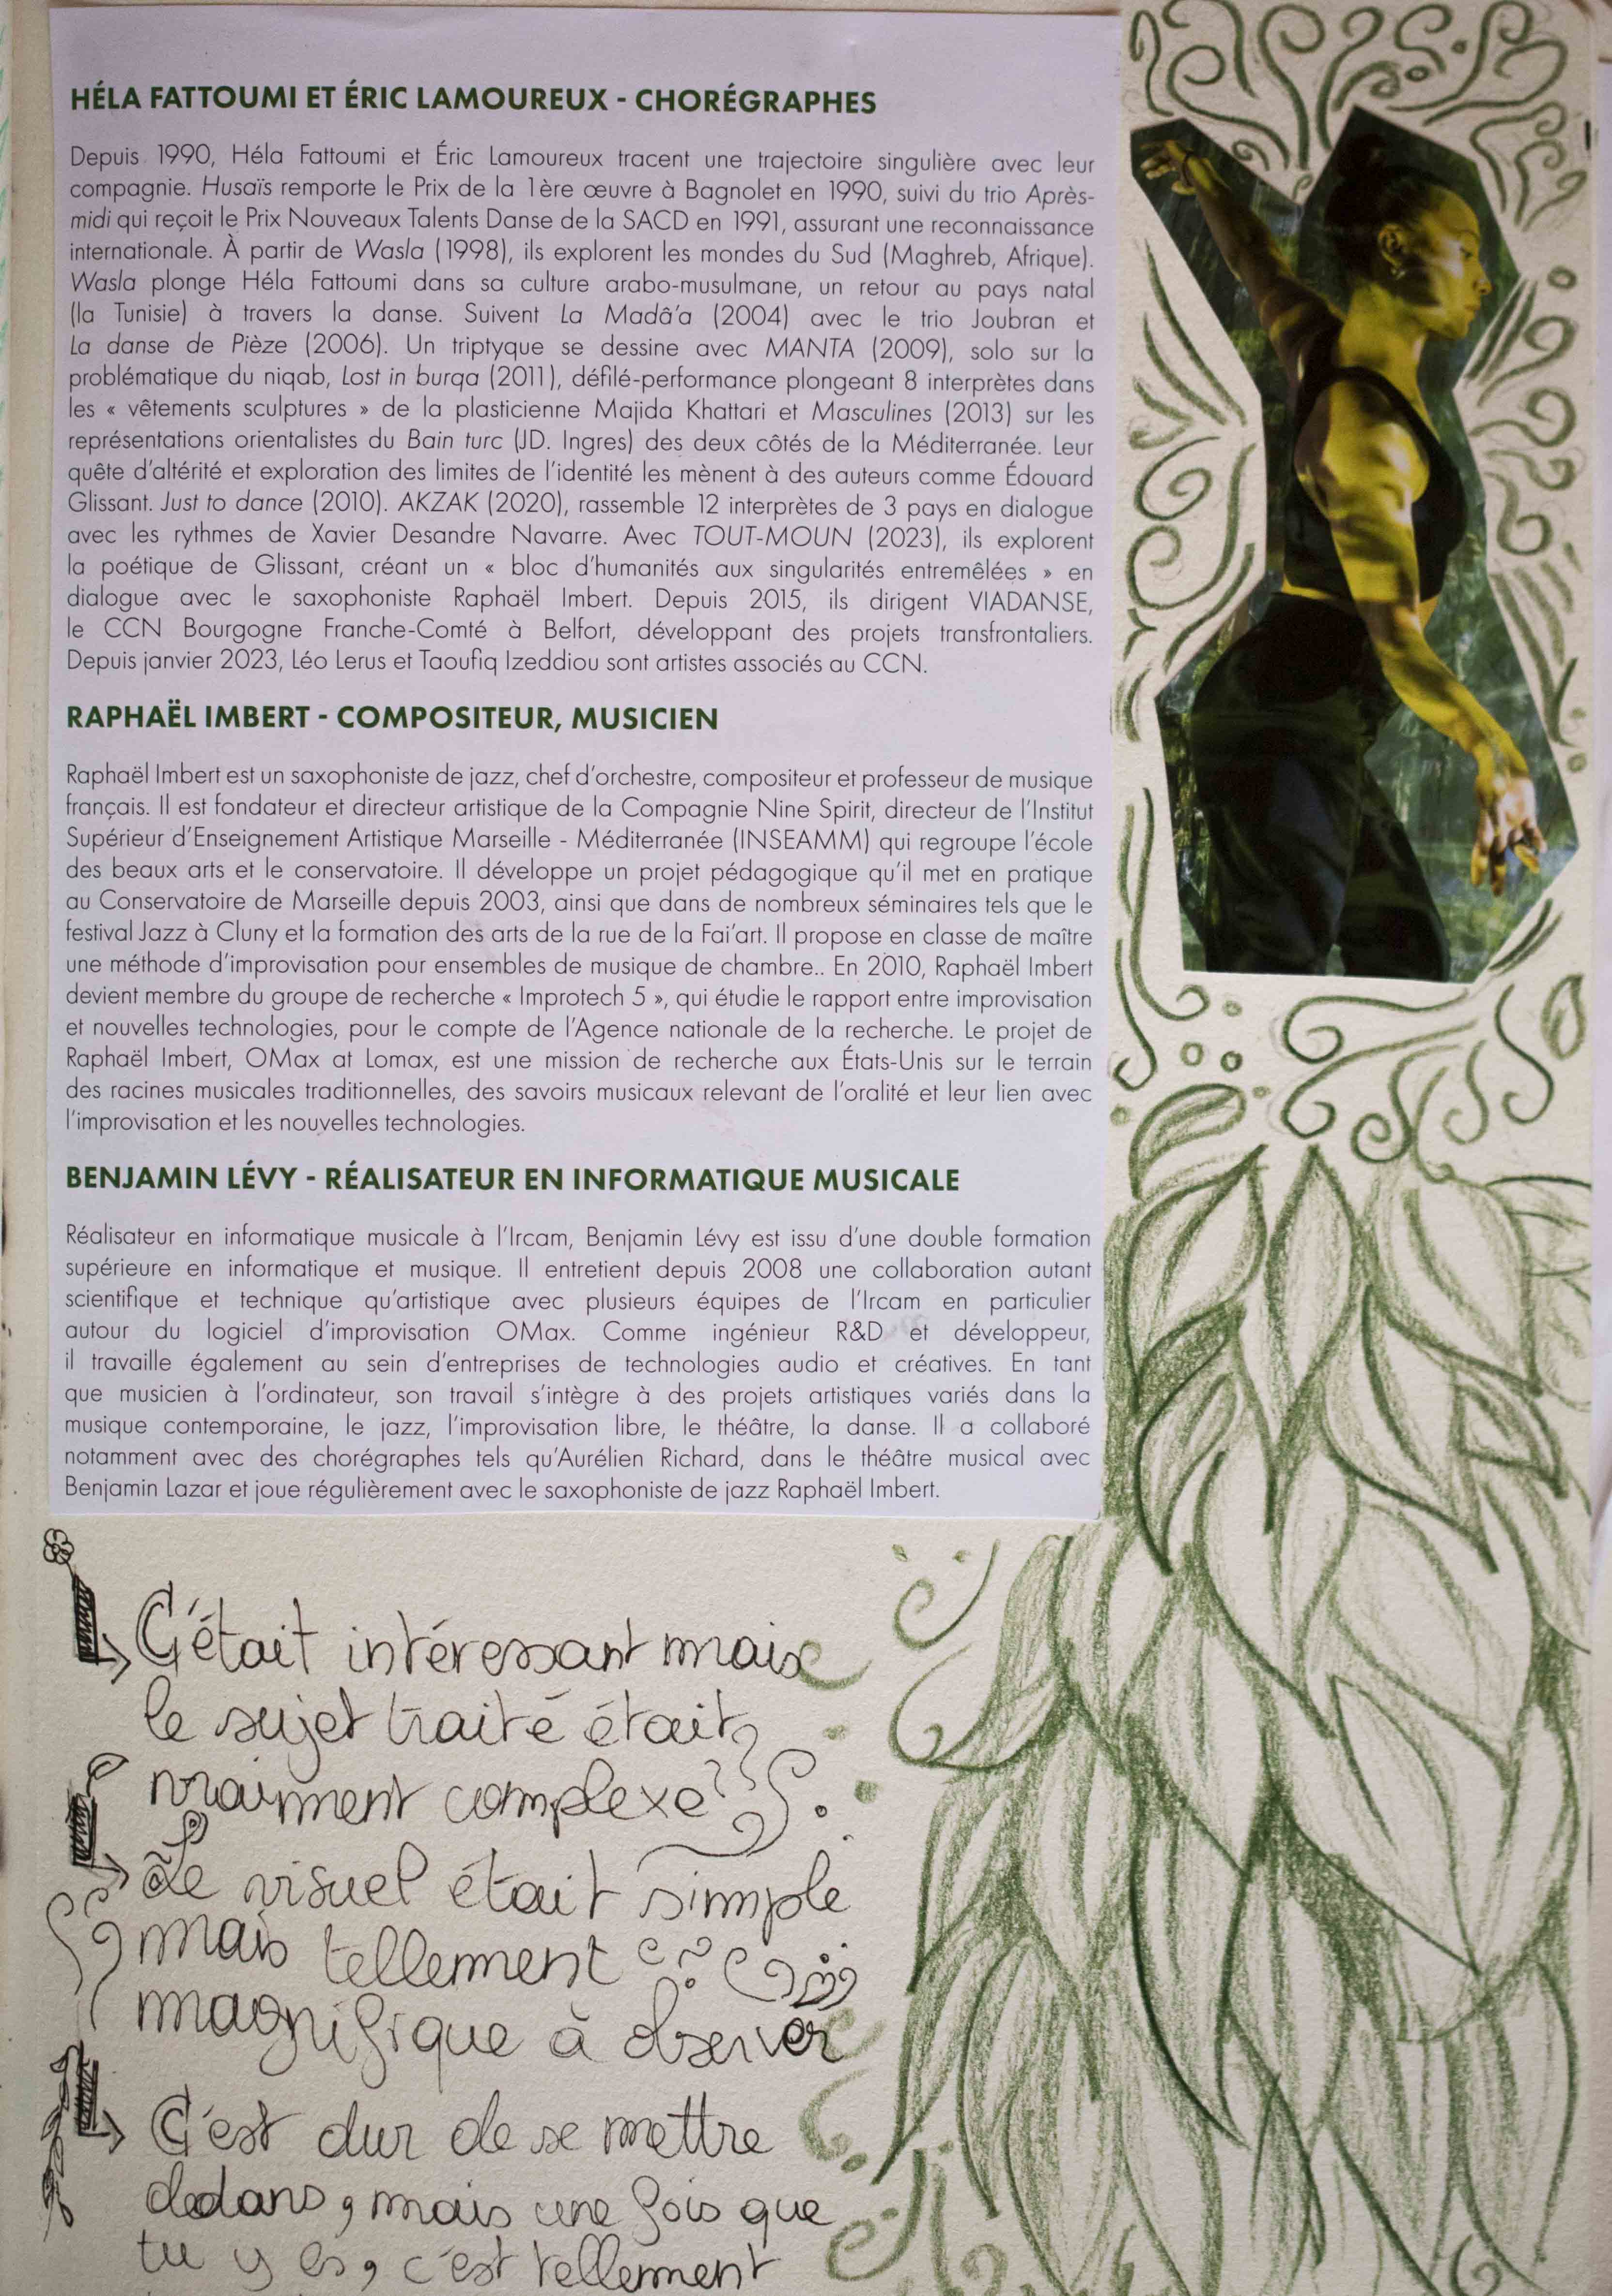 HÉLA FATTOUMI ET ÉRIC LAMOUREUX - CHORÉGRAPHES
Depuis 1990, Héla Fattoumi et Éric Lamoureux tracent une trajectoire singulière avec leur
compagnie. Husaïs remporte le Prix de la 1ère œuvre à Bagnolet en 1990, suivi du trio Après-
midi qui reçoit le Prix Nouveaux Talents Danse de la SACD en 1991, assurant une reconnaissance
internationale. À partir de Wasla (1998), ils explorent les mondes du Sud (Maghreb, Afrique).
Wasla plonge Héla Fattoumi dans sa culture arabo-musulmane, un retour au pays natal
(la Tunisie) à travers la danse. Suivent La Madâ'a (2004) avec le trio Joubran et
La danse de Pièze (2006). Un triptyque se dessine avec MANTA (2009), solo sur la
problématique du niqab, Lost in burqa (2011), défilé-performance plongeant 8 interprètes dans
les « vêtements sculptures » de la plasticienne Majida Khattari et Masculines (2013) sur les
représentations orientalistes du Bain turc (JD. Ingres) des deux côtés de la Méditerranée. Leur
quête d'altérité et exploration des limites de l'identité les mènent à des auteurs comme Édouard
Glissant. Just to dance (2010). AKZAK (2020), rassemble 12 interprètes de 3 pays en dialogue
avec les rythmes de Xavier Desandre Navarre. Avec TOUT-MOUN (2023), ils explorent
la poétique de Glissant, créant un « bloc d'humanités aux singularités entremêlées » en
dialogue avec le saxophoniste Raphaël Imbert. Depuis 2015, ils dirigent VIADANSE,
le CCN Bourgogne Franche-Comté à Belfort, développant des projets transfrontaliers.
Depuis janvier 2023, Léo Lerus et Taoufiq Izeddiou sont artistes associés au CCN.
RAPHAËL IMBERT - COMPOSITEUR, MUSICIEN
Raphaël Imbert est un saxophoniste de jazz, chef d'orchestre, compositeur et professeur de musique
français. Il est fondateur et directeur artistique de la Compagnie Nine Spirit, directeur de l'Institut
Supérieur d'Enseignement Artistique Marseille - Méditerranée (INSEAMM) qui regroupe l'école
des beaux arts et le conservatoire. Il développe un projet pédagogique qu'il met en pratique
au Conservatoire de Marseille depuis 2003, ainsi que dans de nombreux séminaires tels que le
festival Jazz à Cluny et la formation des arts de la rue de la Fai'art. Il propose en classe de maître
une méthode d'improvisation pour ensembles de musique de chambre.. En 2010, Raphaël Imbert
devient membre du groupe de recherche « Improtech 5 », qui étudie le rapport entre improvisation
et nouvelles technologies, pour le compte de l'Agence nationale de la recherche. Le projet de
Raphaël Imbert, OMax at Lomax, est une mission de recherche aux États-Unis sur le terrain
des racines musicales traditionnelles, des savoirs musicaux relevant de l'oralité et leur lien avec
l'improvisation et les nouvelles technologies.
BENJAMIN LÉVY - RÉALISATEUR EN INFORMATIQUE MUSICALE
Réalisateur en informatique musicale à l'Ircam, Benjamin Lévy est issu d'une double formation
supérieure en informatique et musique. Il entretient depuis 2008 une collaboration autant
scientifique et technique qu'artistique avec plusieurs équipes de l'Ircam en particulier
autour du logiciel d'improvisation OMax. Comme ingénieur R&D et développeur,
il travaille également au sein d'entreprises de technologies audio et créatives. En tant
que musicien à l'ordinateur, son travail s'intègre à des projets artistiques variés dans la
musique contemporaine, le jazz, l'improvisation libre, le théâtre, la danse. Il a collaboré
notamment avec des chorégraphes tels qu'Aurélien Richard, dans le théâtre musical avec
Benjamin Lazar et joue régulièrement avec le saxophoniste de jazz Raphaël Imbert.
C'était intéressant mais
le sujet traité était
vraiment complexe
Le visuel était simple
mais tellement
magnifique à observer
C'est dur de se mettre
dedans, mais une fois que
tu y es, c'est tellement